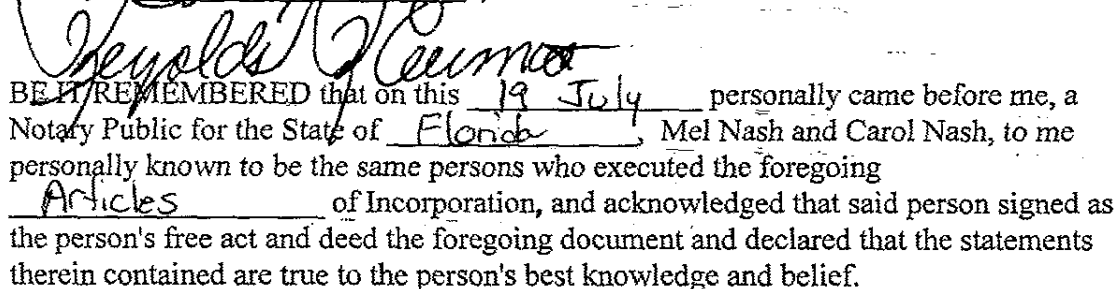 BE IT REMEMBERED that on this 19 July personally came before me, a
Notary Public for the State of Florida, Mel Nash and Carol Nash, to me
personally known to be the same persons who executed the foregoing
Articles of Incorporation, and acknowledged that said person signed as
the person's free act and deed the foregoing document and declared that the statements
therein contained are true to the person's best knowledge and belief.